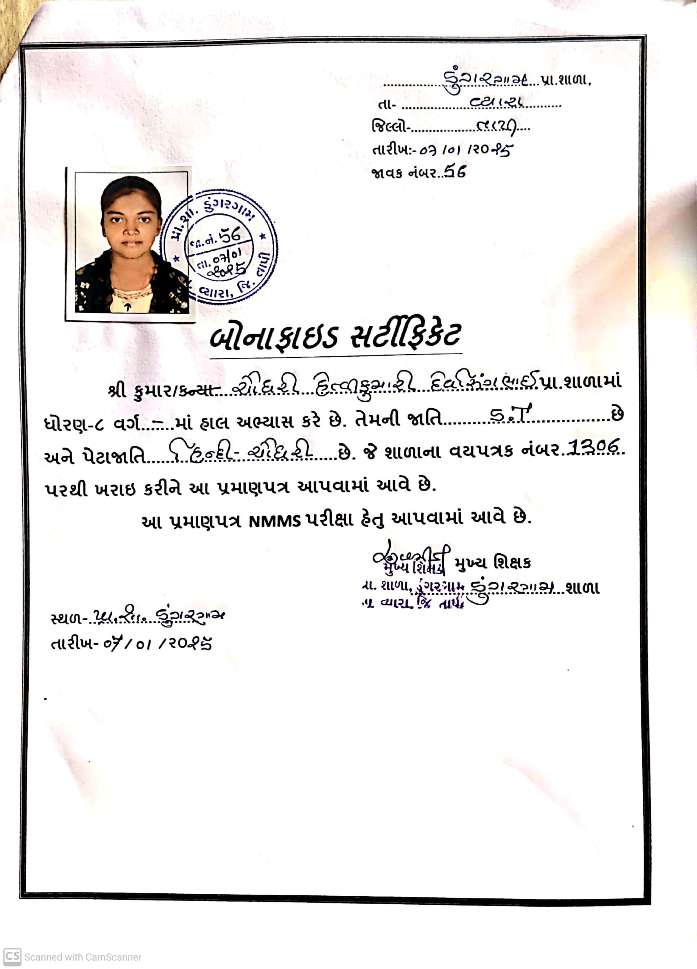 ડુંગરગામ પ્રા.શાળા,
તા- વ્યારા
જિલ્લો- તાપી
તારીખ:- ૦૭/૦૧/૨૦૨૫
જાવક નંબર..56
પ્રા. શા. ડુંગરગામ
જા.નં. 56
તા. ૦૭/૦૧
૨૦૨૫
વ્યારા, જિ. તાપી
બોનાફાઇડ સર્ટીફિકેટ
શ્રી કુમાર/કન્યા- ચૌધરી હેત્વીકુમારી દેવસિંગભાઈ પ્રા.શાળામાં
ધોરણ-૮ વર્ગ..–..માં હાલ અભ્યાસ કરે છે. તેમની જાતિ S.T છે
અને પેટાજાતિ હિન્દુ-ચૌધરી છે. જે શાળાના વયપત્રક નંબર.1306.
પરથી ખરાઇ કરીને આ પ્રમાણપત્ર આપવામાં આવે છે.
આ પ્રમાણપત્ર NMMS પરીક્ષા હેતુ આપવામાં આવે છે.
મુખ્ય શિક્ષક મુખ્ય શિક્ષક
પ્રા. શાળા, ડુંગરગામ ડુંગરગામ શાળા
તા વ્યારા જિ તાપી
સ્થળ- પ્રા.શા. ડુંગરગામ
તારીખ- ૦૭/૦૧/૨૦૨૫
CS Scanned with CamScanner